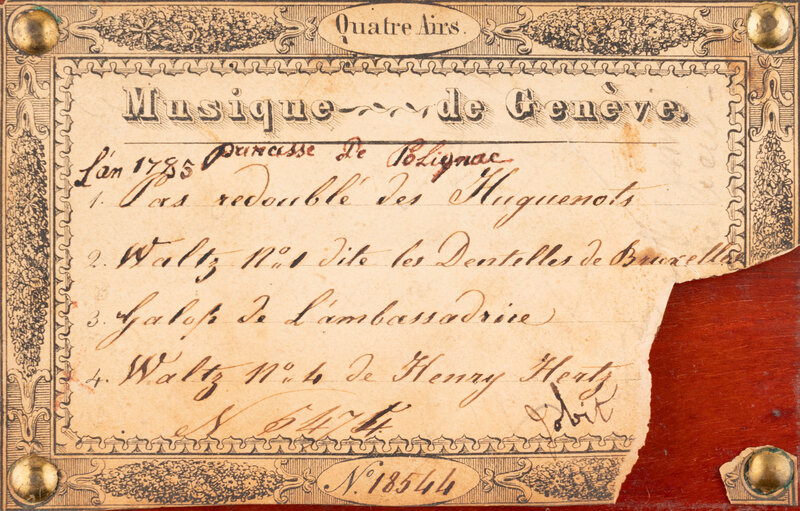 Quatre Airs.
Musique de Genève.
L'an 1785 princasse De Polignac
1. Pas redoublé des Huguenots
2. Waltz Nº 1 dite les Dentelles de Bruxelle
3. Galop de L'ambassadrice
4. Waltz Nº 4 de Henry Hertz
N 6474
Nº 18544